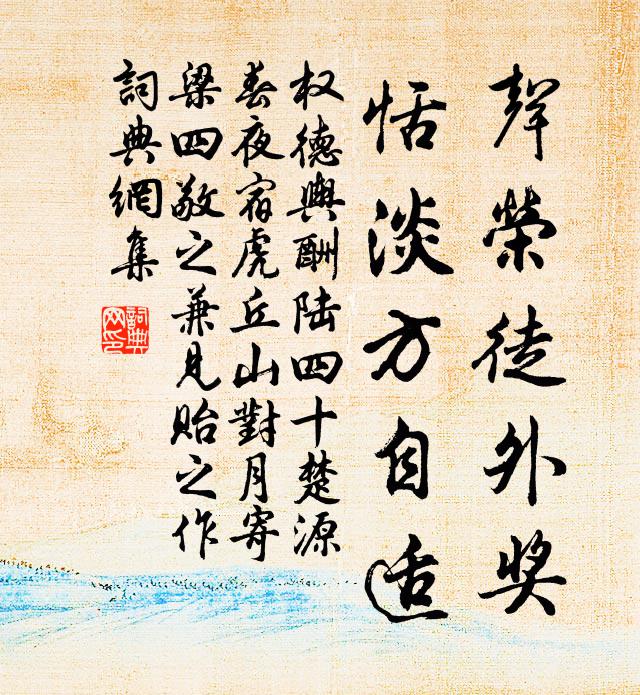 聲榮徒外奖
恬淡方自适
权德輿酬陆四十楚源
春夜宿虎丘山對月寄
梁四敬之兼見贻之作
詞典網集
詞典網印